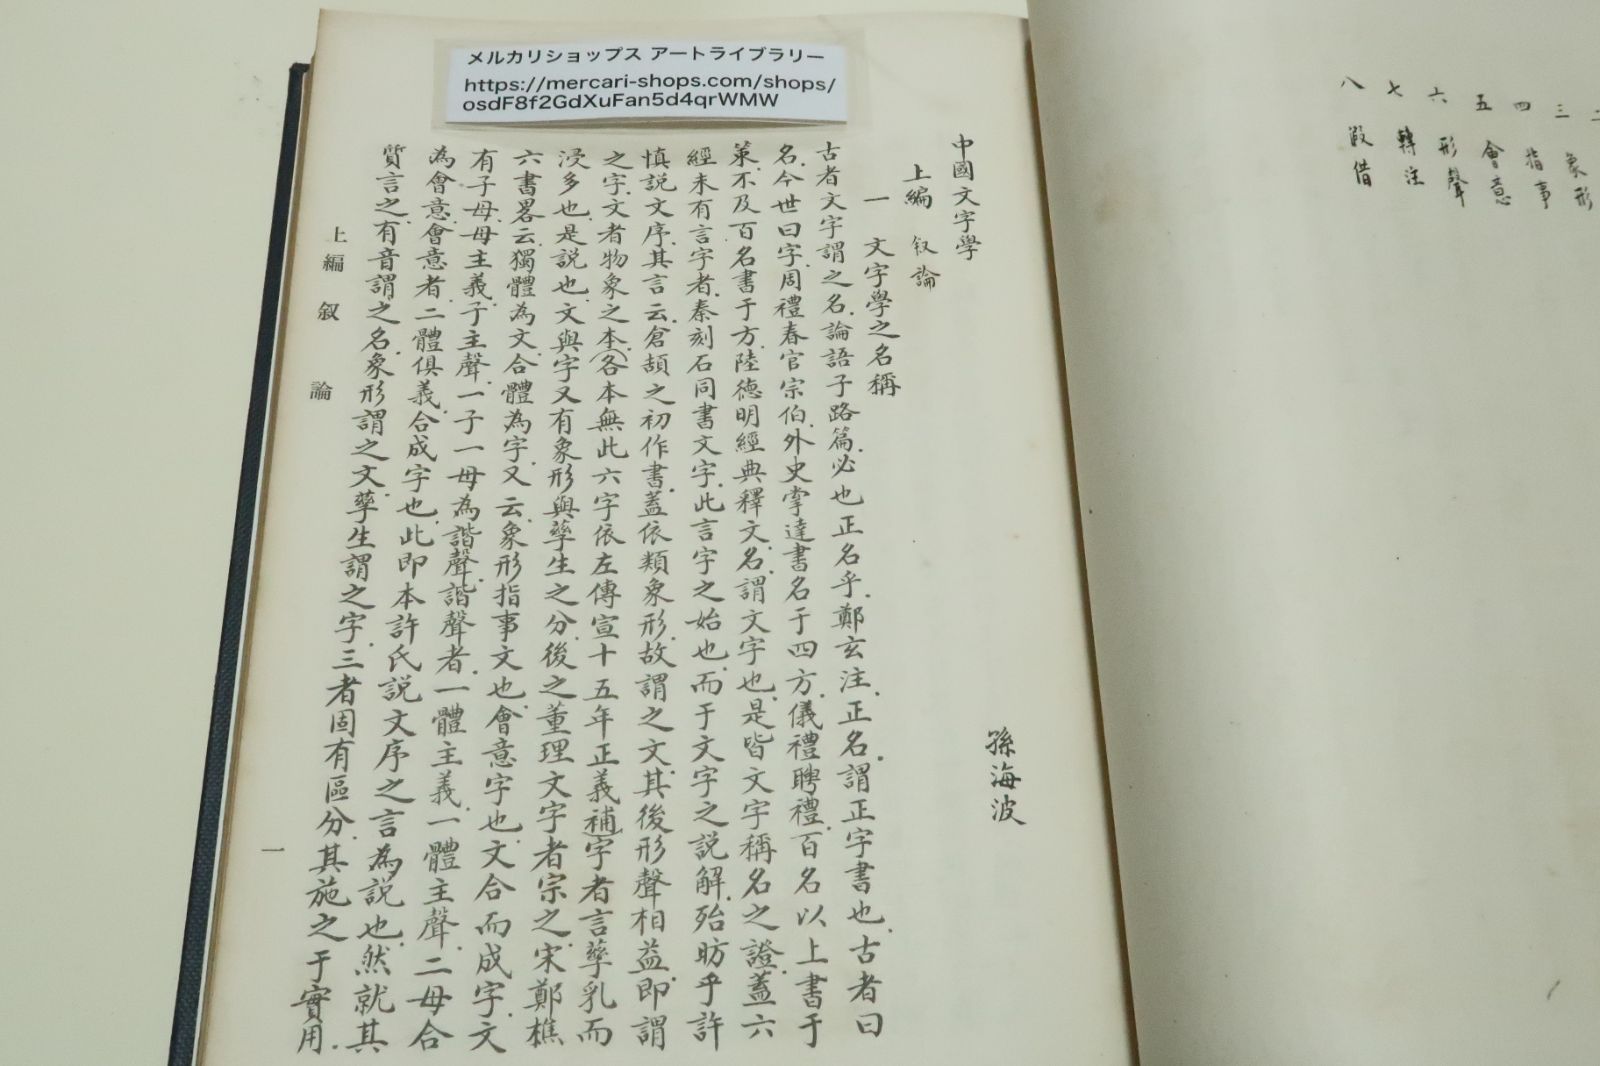 メルカリショップス アートライブラリー
https://mercari-shops.com/shops/
osdF8f2GdXuFan5d4qrWMW
二
三 象形
四 指事
五 會意
六 形聲
七 轉注
八 叚借
中國文字學
孫海波
上編 叙論
一 文字學之名稱
古者文字謂之名.論語子路篇.必也正名乎.鄭玄注.正名謂正字書也.古者曰
名.今世曰字.周禮春官宗伯.外史掌達書名于四方.儀禮聘禮.百名以上書于
策.不及百名書于方.陸德明經典釋文.名.謂文字也.是皆文字稱名之證.蓋六
經未有言字者.秦刻石同書文字.此言字之始也.而于文字之説解.殆昉乎許
慎説文序.其言云.倉頡之初作書.蓋依類象形.故謂之文.其後形聲相益.即謂
之字.文者物象之本.(各本無此六字依左傳宣十五年正義補)字者言孳乳而
浸多也.是説也.文與字又有象形與孳生之分.後之董理文字者宗之.宋鄭樵
六書畧云.獨體為文.合體為字.又云.象形指事文也.會意字也.文合而成字.文
有子母.母主義.子主聲.一子一母為諧聲.諧聲者.一體主義.一體主聲.二母合
為會意.會意者.二體俱義.合成字也.此即本許氏説文序之言為説也.然就其
質言之.有音謂之名.象形謂之文.孳生謂之字.三者固有區分.其施之于實用.
上編 叙 論
一